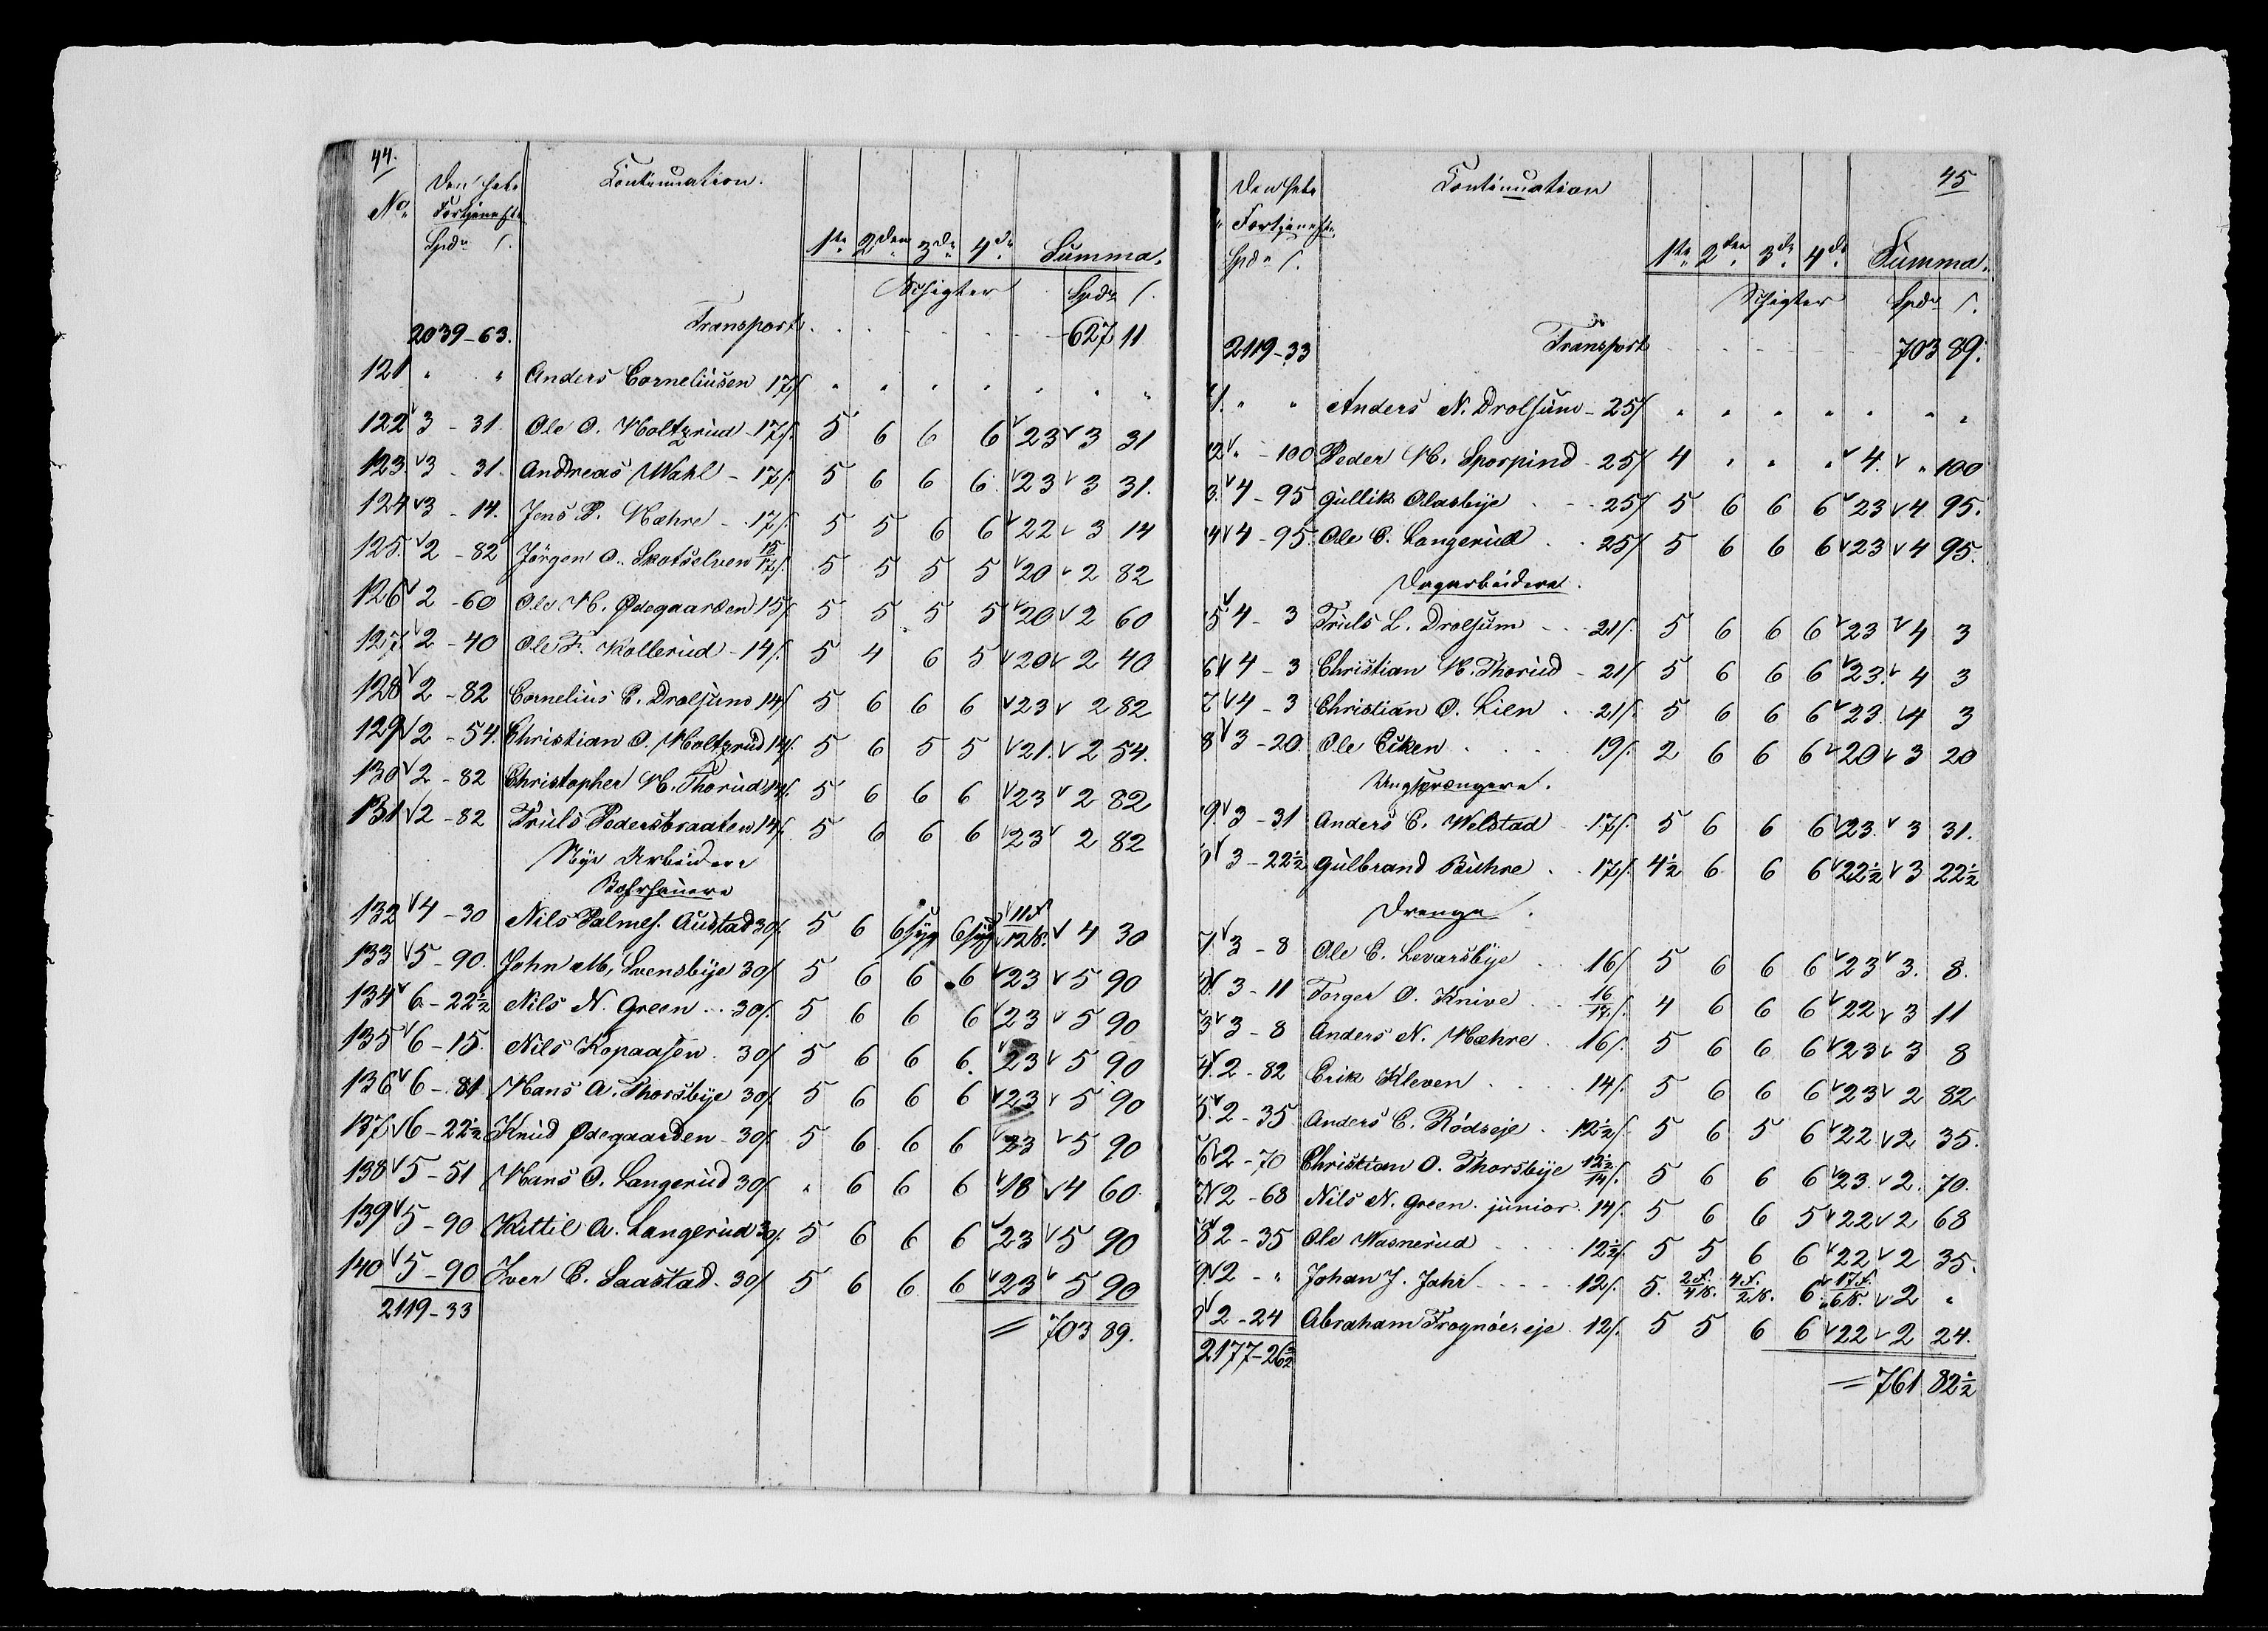 44.
Den hele Continuation.
No. Fortjeneste
Spd. s. 1te 2den 3de 4de Summa.
Schigter Spd. s.
2039-63. Transport 627 11
121 " " Anders Corneliusen 17s. " " " " " " "
122 3-31. Ole O. Holtzrud 17s. 5 6 6 6 23 3 31
123 3-31. Andreas Wahl - 17s. 5 6 6 6 23 3 31.
124 3-14. Jens P. Mæhre - 17s. 5 5 6 6 22 3 14
125. 2-82 Jörgen O. Skotselven 15/17s. 5 5 5 5 20 2 82
126 2-60 Ole H. Ødegaarden 15s. 5 5 5 5 20 2 60
127 2-40 Ole F. Kollerud - 14s. 5 4 6 5 20 2 40
128 2-82 Cornelius C. Drolsum 14s. 5 6 6 6 23 2 82
129 2-54. Christian O. Holtzrud 14s. 5 6 5 5 21. 2 54.
130 2-82 Christopher H. Thorud 14s. 5 6 6 6 23 2 82
131 2-82 Truls Pedersbraaten 14s. 5 6 6 6 23 2 82
Nye Arbeidere
Borhauere
132 4-30 Nils Palmes. Austad 30s. 5 6 6 syg 6 syg 11 f. 12 s. 4 30
133 5-90. John M. Svensbye 30s. 5 6 6 6 23 5 90
134 6-22½ Nils N. Green .. 30s. 5 6 6 6 23 5 90
135 6-15. Nils Kopaasen. 30s. 5 6 6 6. 23 5 90
136 6-81 Hans A. Thorsbye 30s. 5 6 6 6 23 5 90
137 6-22½ Knud Ødegaarden - 30s. 5 6 6 6 23 5 90
138 5-51 Hans O. Langerud 30s. " 6 6 6 18 4 60.
139 5-90 Kittil A. Langerud 30s. 5 6 6 6 23 5 90
140 5-90 Iver C. Saastad - 30s. 5 6 6 6 23 5 90
2119-33 = 703 89.
45
Den hele Continuation
Fortjeneste
Spd. s. 1te 2den 3de 4de Summa.
Schigter Spd. s.
2119-33 Transport 703 89.
1. " " Anders N. Drolsum - 25s. " " " " " " "
2 " -100 Peder H. Sporpind - 25s. 4 " " " 4. " 100
3. 4-95 Gullik Alasbye - - 25s. 5 6 6 6 23 4 95.
4 4-95. Ole C. Langerud . . 25s. 5 6 6 6 23 4 95.
Dagarbeidere.
5. 4-3 Truls L. Drolsum - - 21s. 5 6 6 6 23 4 3
6 4-3 Christian H. Thorud - 21s. 5 6 6 6 23. 4 3
7 4-3 Christian O. Lien . . 21s. 5 6 6 6 23. 4 3
8 3-20. Ole Eiken . . . 19s. 2 6 6 6 20 3 20
Ungsprængere.
9. 3-31 Anders C. Welstad 17s. 5 6 6 6 23. 3 31.
0 3-22½ Gulbrand Buhre . . 17s. 4½ 6 6 6 22½ 3 22½
Drenge.
1. 3-8 Ole C. Levarsbye . . 16s. 5 6 6 6 23 3. 8.
2. 3-11 Torger O. Knive . . 16/17s. 4 6 6 6 22 3 11
3 3-8 Anders N. Mæhre . 16s. 5 6 6 6 23 3 8
4. 2-82 Erik Kleven . . . 14s. 5 6 6 6 23 2 82
5. 2-35 Anders C. Rödseje . . 12½s. 5 6 5 6 22 2 35.
6 2-70 Christian O. Thorsbye 12½/14s. 5 6 6 6 23. 2. 70.
7 2-68 Nils N. Green junior. 14s. 5 6 6 5 22 2 68
8 2-35 Ole Wasnerud . . . 12½s. 5 5 6 6 22 2 35.
9 2-" Johan J. Jahr - - - 12s. 5. 2 f. 4 s. 4 f. 2 s. 6 17 f. 6 s. 2 "
0 2-24 Abraham Frognöeseje . 12s. 5 5 6 6 22 2 24.
2177-26½
= 761 82½